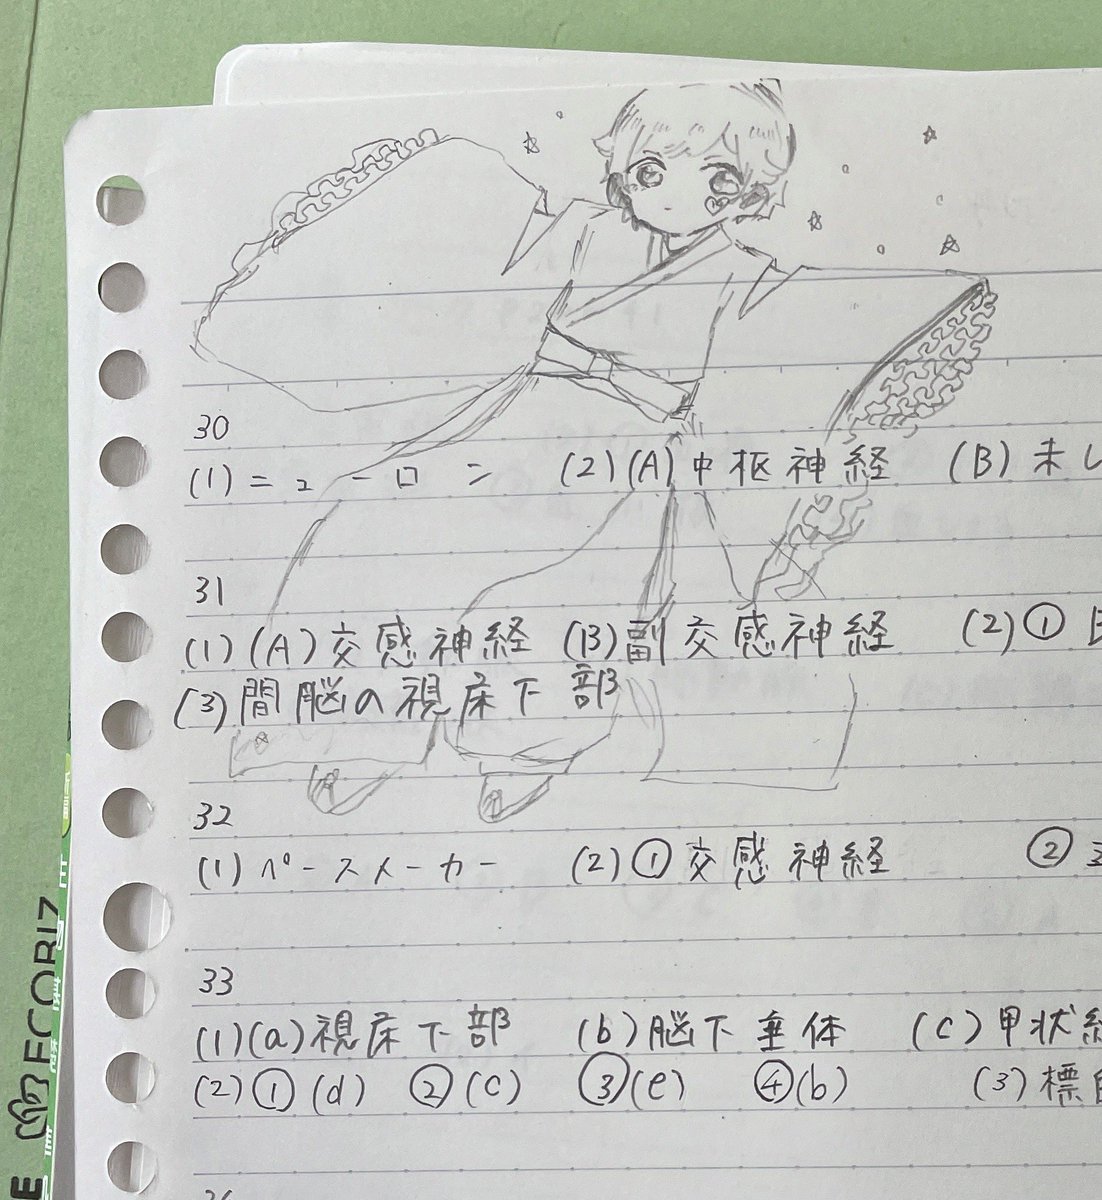 30
(1) ニューロン (2)(A) 中枢神経 (B) 末し
31
(1) (A) 交感神経 (B) 副交感神経 (2) ①
(3) 間脳の視床下部
32
(1) ペースメーカー (2) ① 交感神経 ②
33
(1)(a) 視床下部 (b) 脳下垂体 (c) 甲状
(2) ① (d) ② (c) ③ (e) ④ (b) (3) 標
ECOBIZ